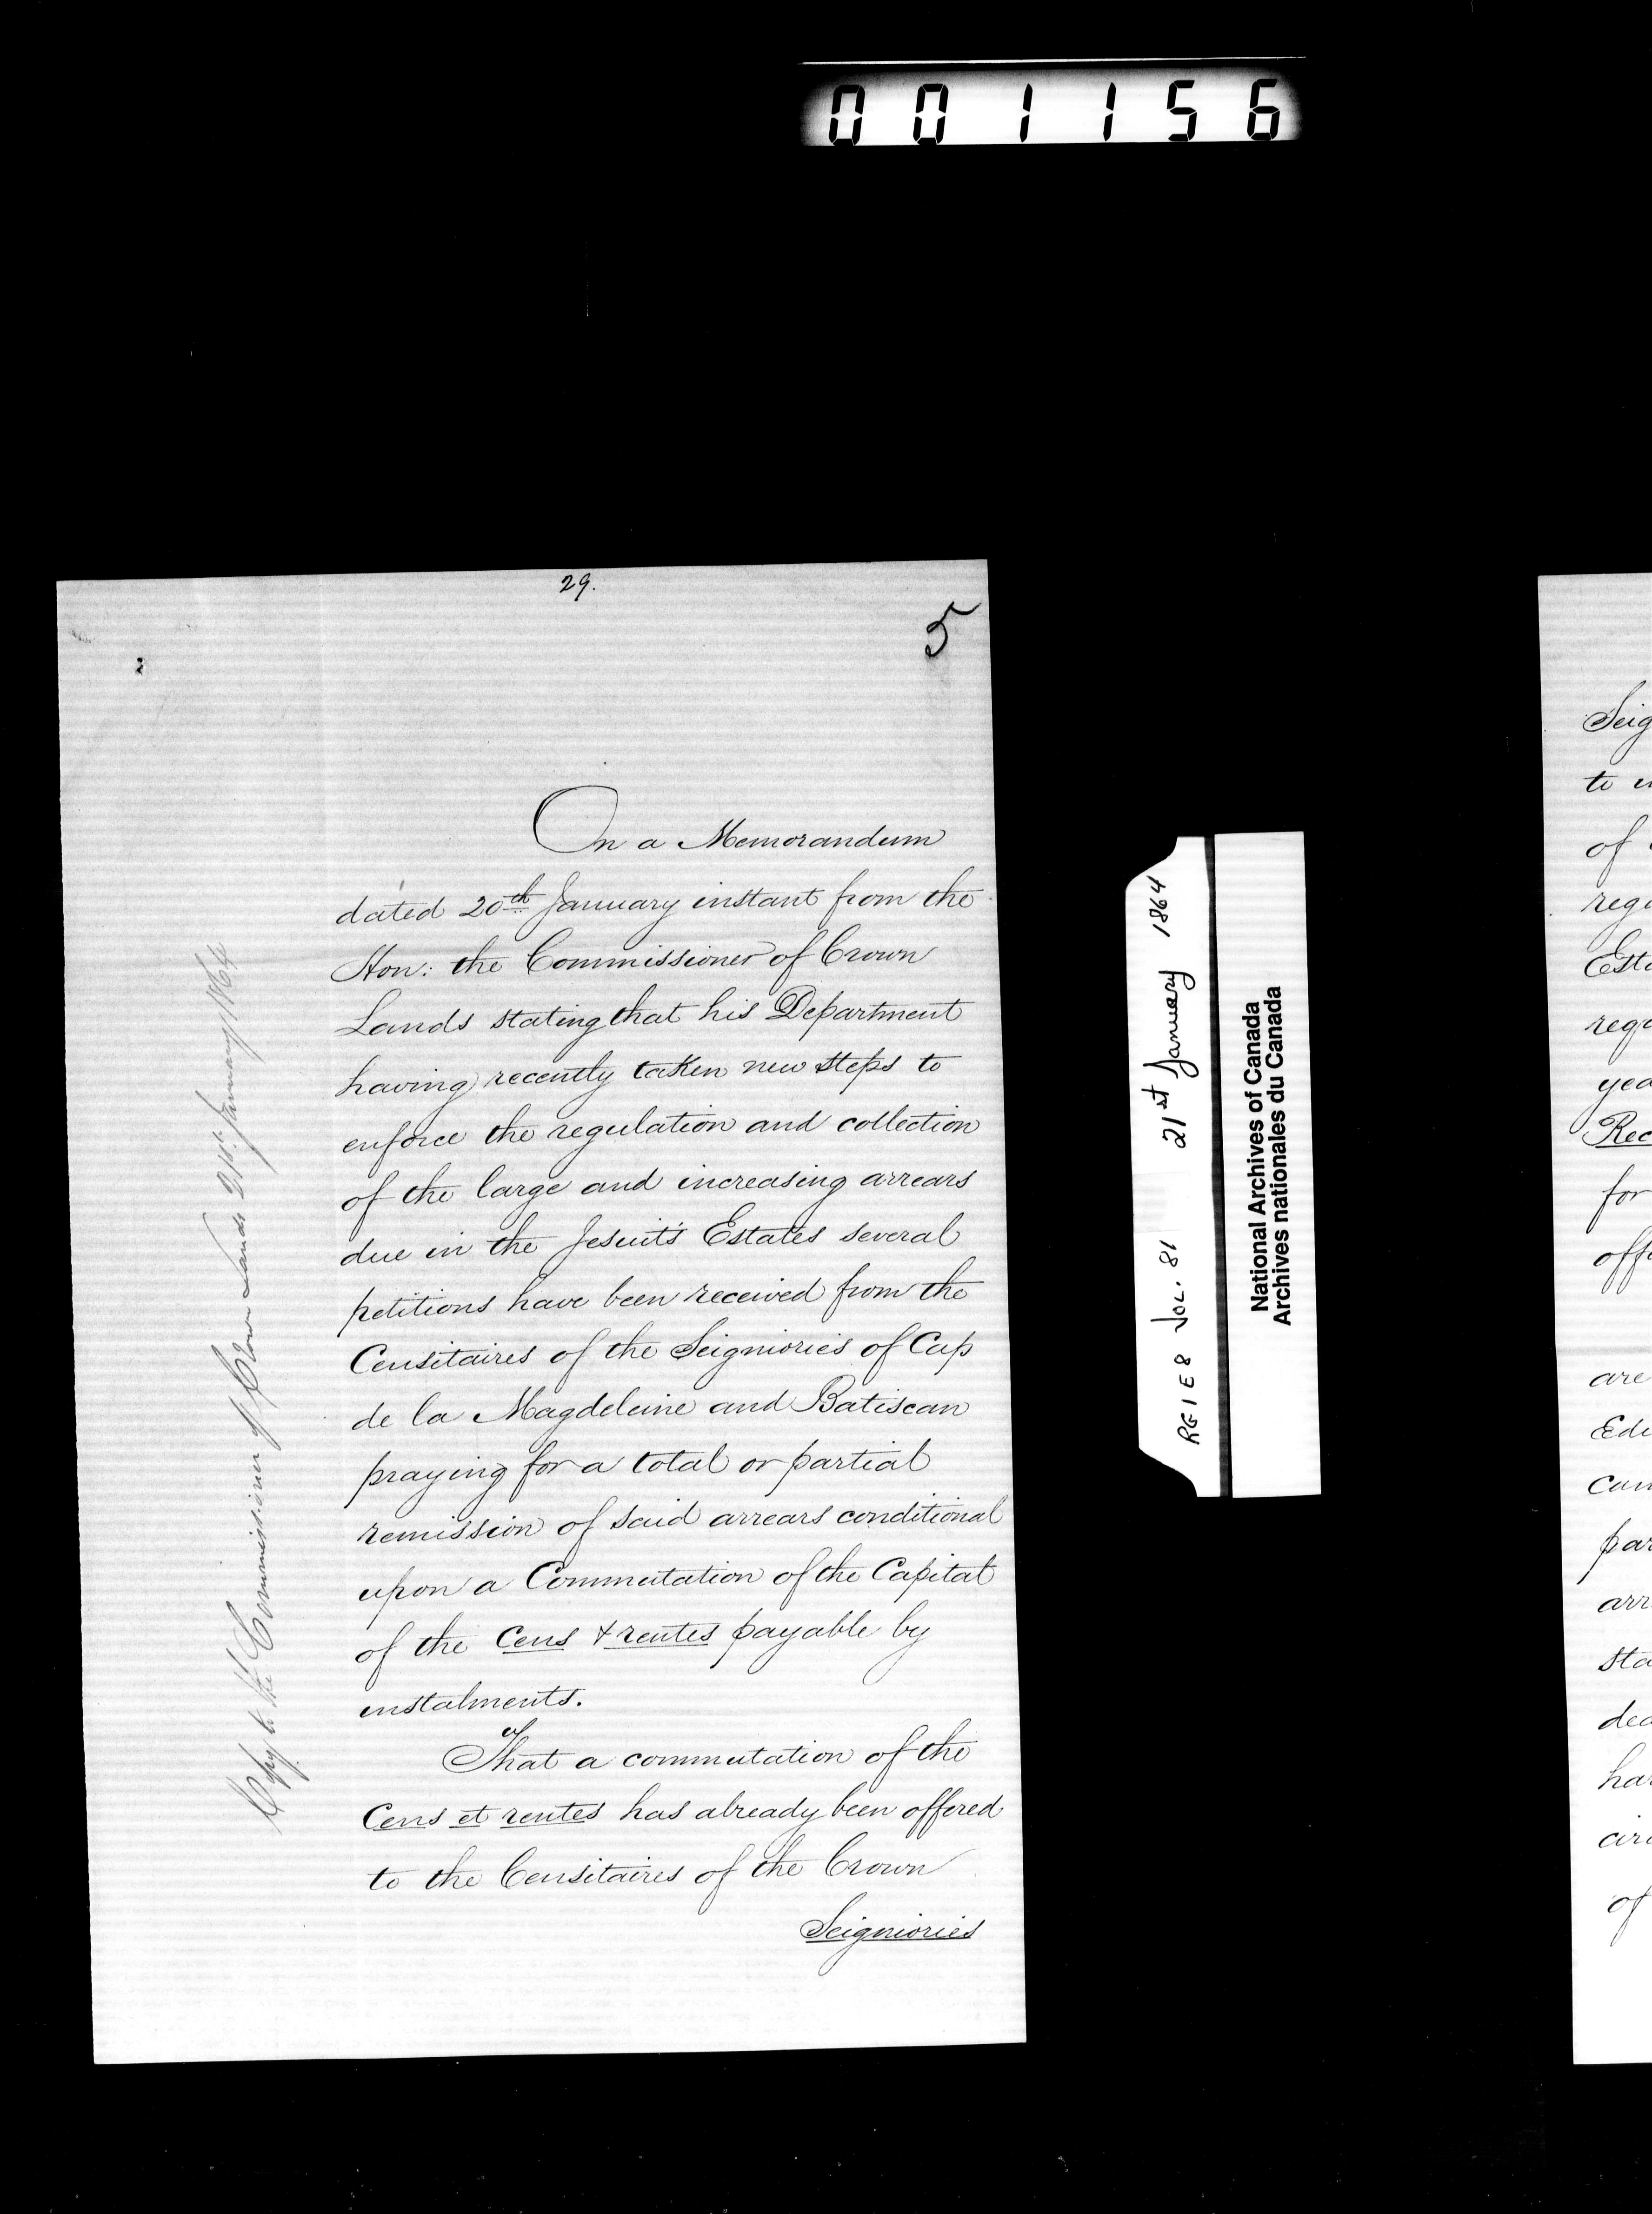 001156
29.
5
On a Memorandum
dated 20th January instant from the
Hon: the Commissioner of Crown
Lands stating that his Department
having recently taken new steps to
enforce the regulation and collection
of the large and increasing arrears
due in the Jesuit's Estates several
petitions have been received from the
Censitaires of the Seigniories of Cap
de la Magdeleine and Batiscan
praying for a total or partial
remission of said arrears conditional
upon a Commutation of the Capital
of the Cens & rentes payable by
instalments.
That a commutation of the
Cens et rentes has already been offered
to the Censitaires of the Crown
Seigniories
Copy to the Commissioner of Crown Lands 21st January 1864
RG 1 E 8 VOL. 81 21st January 1864
National Archives of Canada
Archives nationales du Canada
Seig
to
of
regu
Esta
requ
yea
Rec
for
offe
are
Edu
can
par
arr
sta
dec
har
circ
of